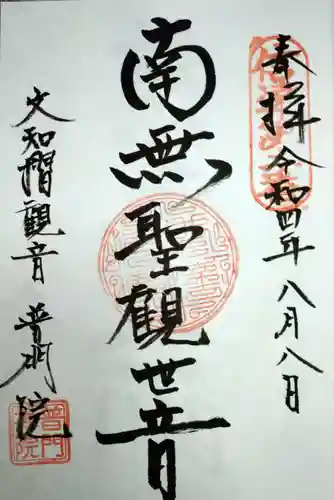 奉拝 令和四年 八月八日
南無聖觀世音
文知摺觀音 普門院
普門院